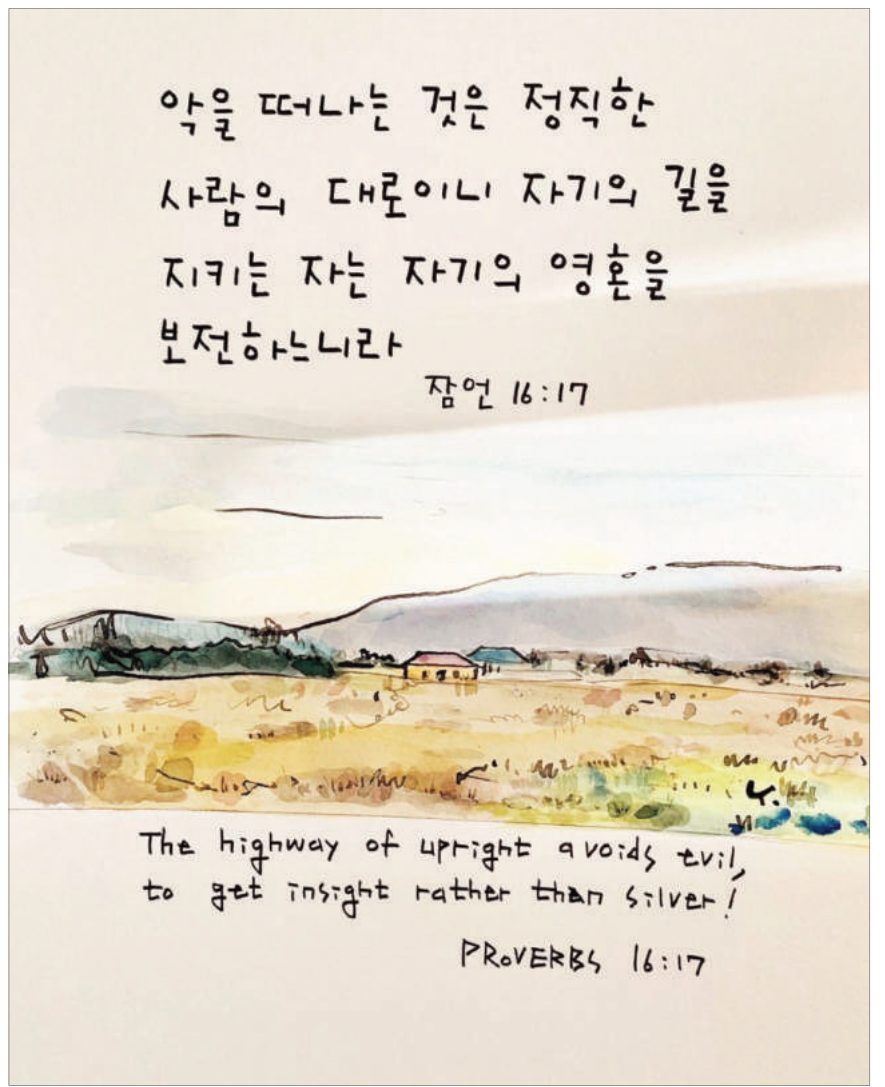 악을 떠나는 것은 정직한
사람의 대로이니 자기의 길을
지키는 자는 자기의 영혼을
보전하느니라
잠언 16:17
The highway of upright avoids evil,
to get insight rather than silver!
PROVERBS 16:17